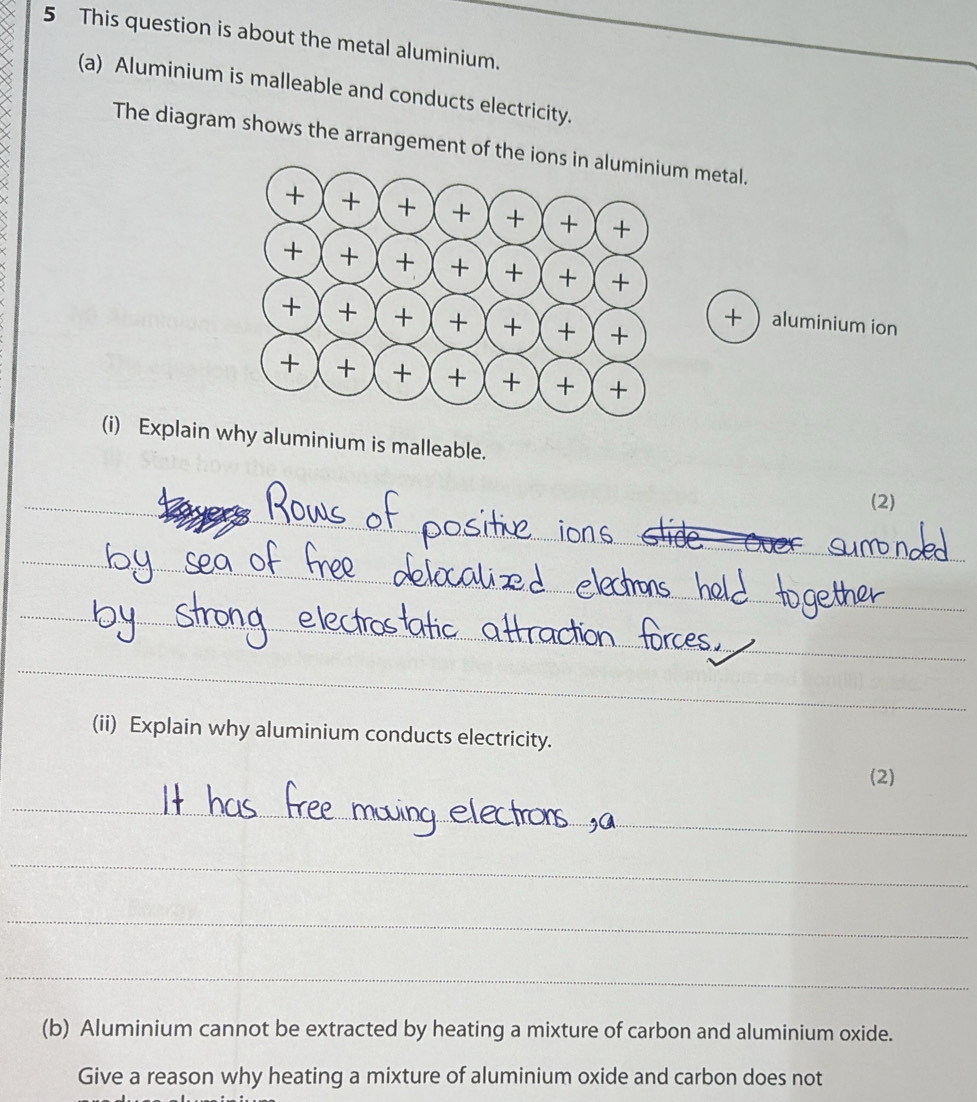 5 This question is about the metal aluminium.
(a) Aluminium is malleable and conducts electricity.
The diagram shows the arrangement of the ions in aluminium metal.
+ + + + + + +
+ + + + + + +
+ + + + + + +
+ aluminium ion
+ + + + + + +
(i) Explain why aluminium is malleable.
(2)
layers Rows of positive ions slide over surronded
by sea of free delocalized electrons held together
by strong electrostatic attraction forces.
(ii) Explain why aluminium conducts electricity.
(2)
It has free moving electrons, a
(b) Aluminium cannot be extracted by heating a mixture of carbon and aluminium oxide.
Give a reason why heating a mixture of aluminium oxide and carbon does not